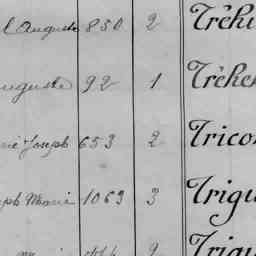 l Auguste 850 2 Tréhi
Auguste 92 1 Tréhe
rie Joseph 653 2 Trico
seph Marie 1063 3 Trigu
2 Trigu